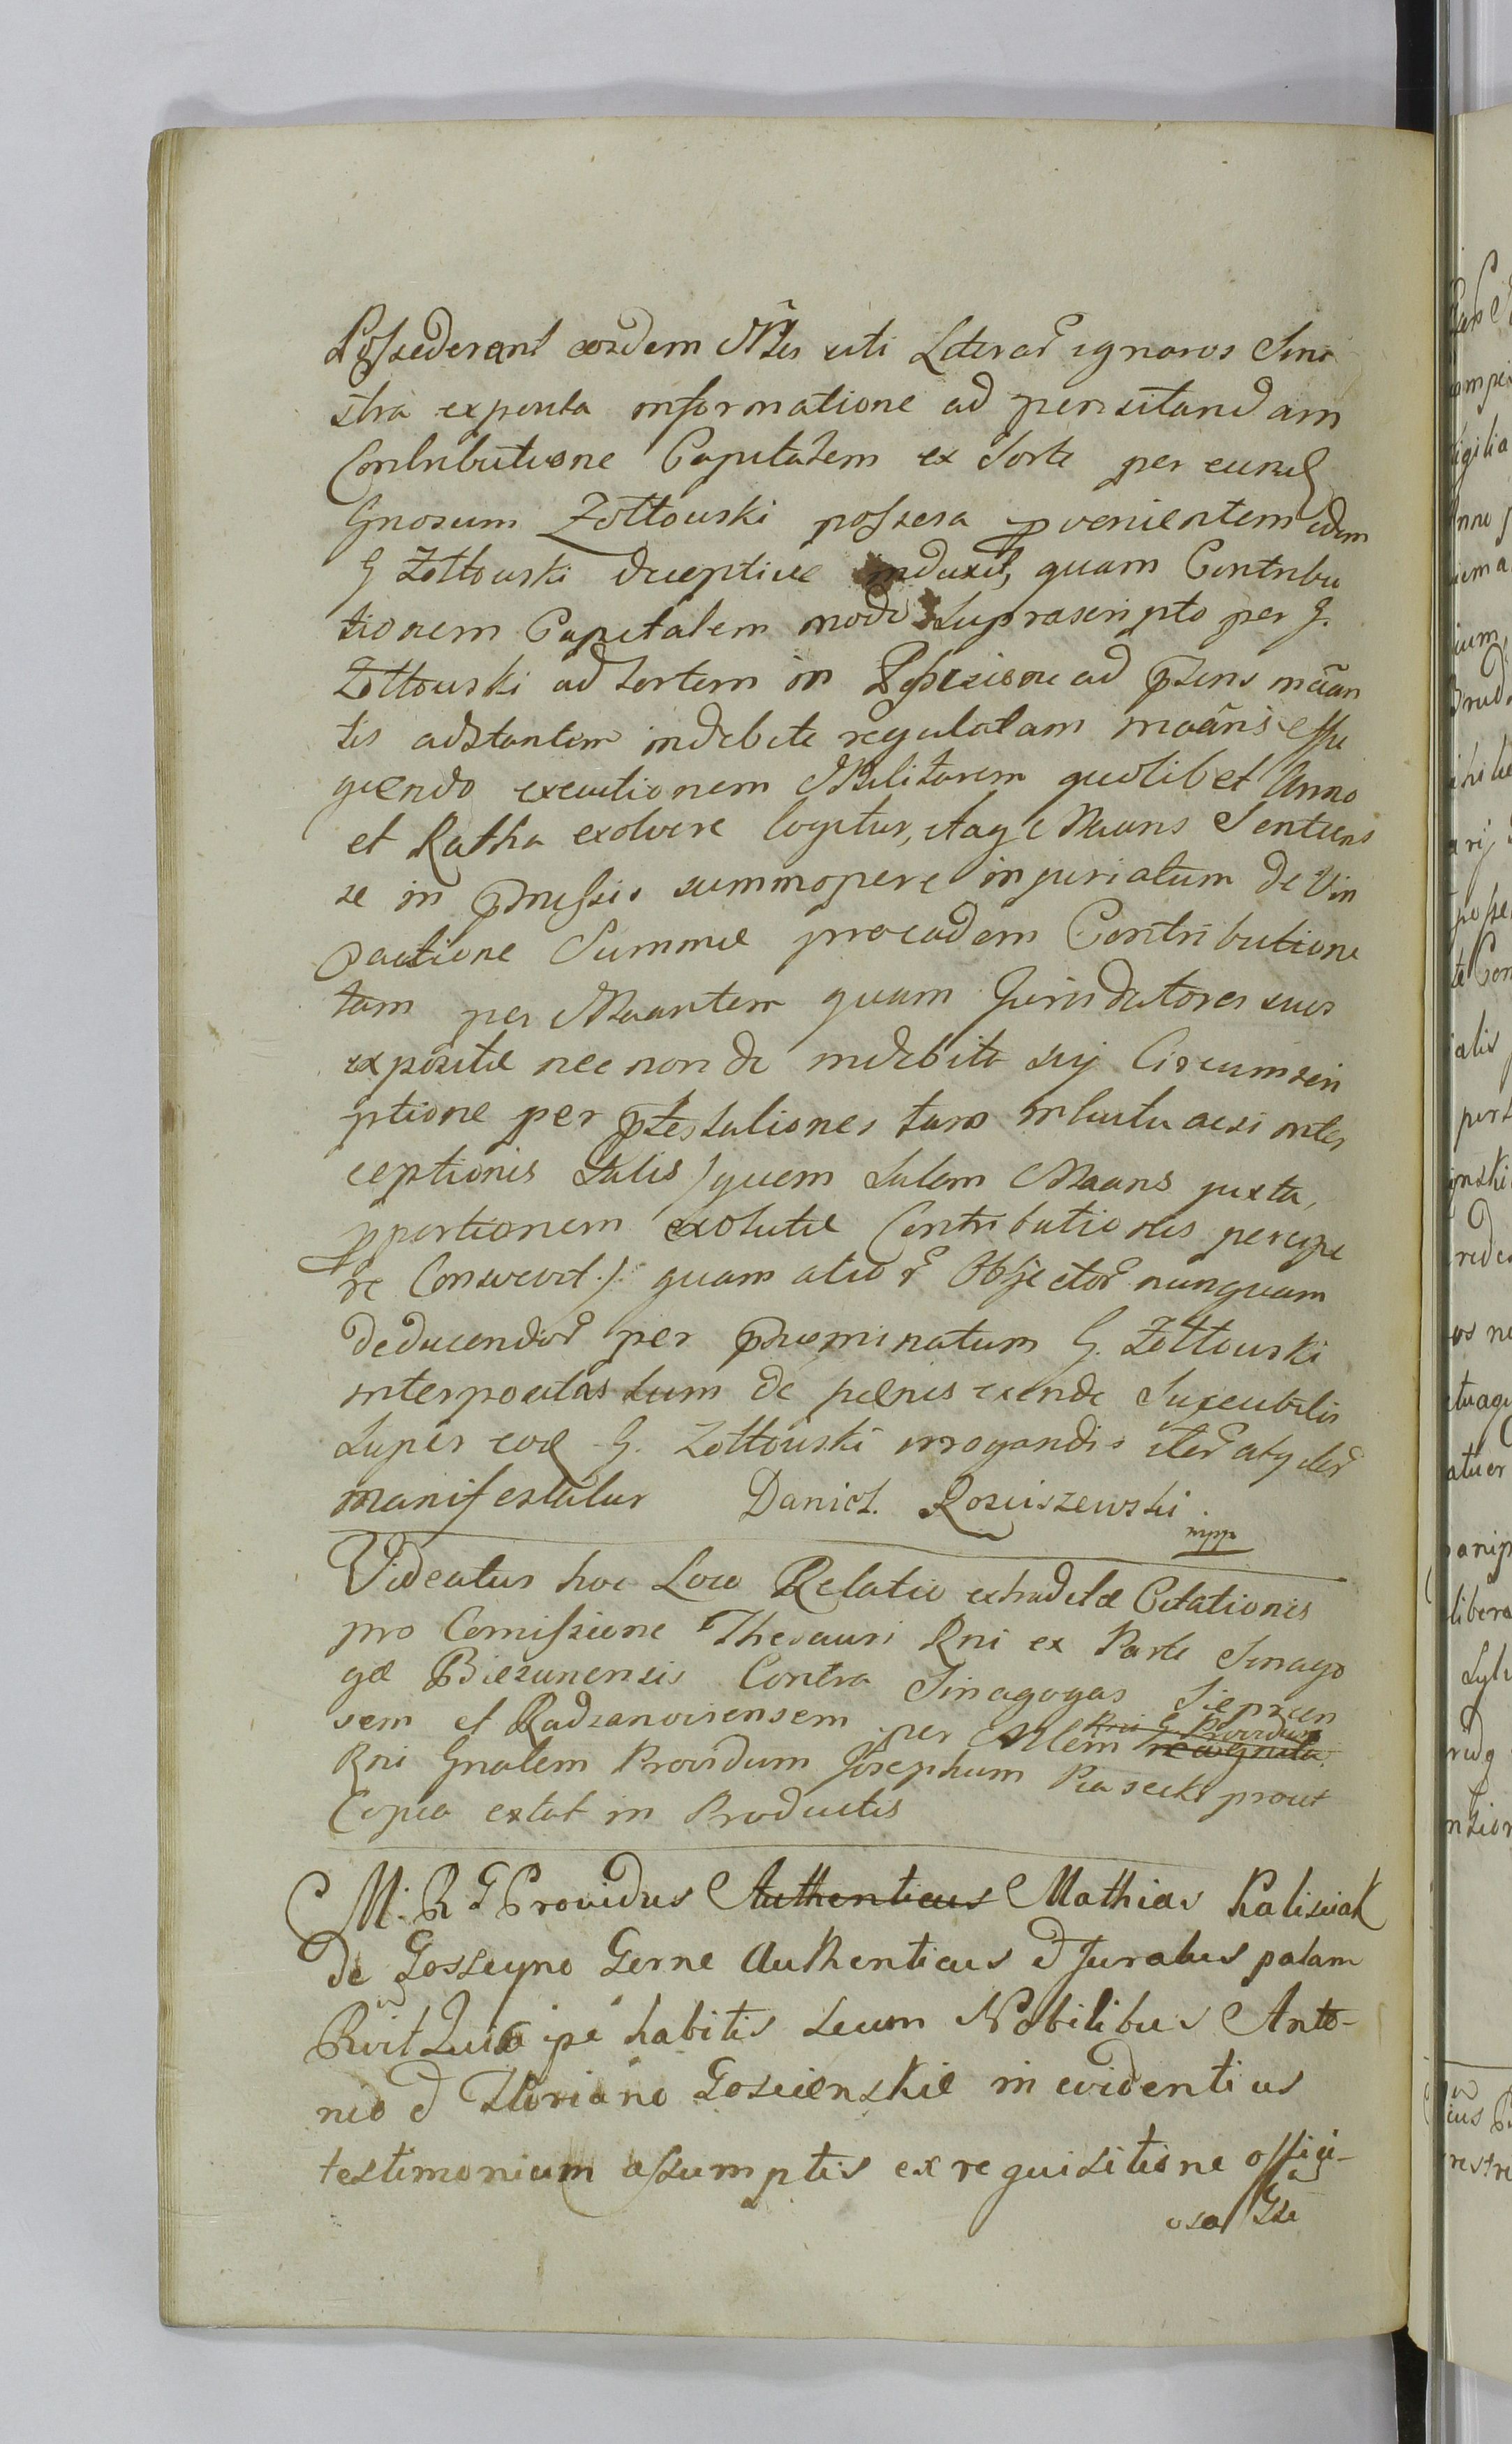 Possederant eosdem Mtes uti Literar ignaros Sini
stra exposita informatione ad pensitandam
Contributione Capitalem ex Sorte per eund
Gnosum Zołtowski possesa pvenientem idem
G Zołtowski deceptive induxit, quam Contribu
tionem Capitalem modo Suprascripto per G.
Zołtowski ad sortem in Possesione ad psens mãan
tis adstantem indebite regulatam mãans effu
giendo executionem Militarem quolibet Anno
et Ratha exolvere cogitur, itaq Maans Sentiens
se in pmissis summopere injuriatum de Vin
Summae pro eadem Contributione
tam per Maantem quam Jurisdatores suos
expositae nec non de indebita sui Circumscri
ptione per ptestationes tam intuitu acsi inter
ceptionis Salis /quem Salem Maans juxta
pportionem exolutae Contributionis percipe
re Consuevit./: quam alior Objector nunquam
deducendor per pnominatum G. Zołtowski
interpositas tum de paenis exinde Succubilis
Super eod G. Zołtowski irrogandis iter atq iter
manifestatur Daniel Rosciszewski
mpp
Videatur hoc Loco Relatio extraditae Citationis
pro Comissione Thesauri Rni ex Parte Sinago
gae Biezunensis Contra Sinagogas Sieprcen
sem et Radzanoviensem per Mlem Rni G Providum recognita
Rni Gnalem Providum Josephum Piasecki prout
Copia extat in Productis
M. R G Providus Authenticus Mathias Kalisiak
de Goszcyno Gerne Authenticus et Juratus palam
Rvit Quia ipe habitis Secum Nobilibus Anto-
nio et Floriano Goscienskie in evidentius
testimonium assumptis ex requisitione offici-
osa Gsi